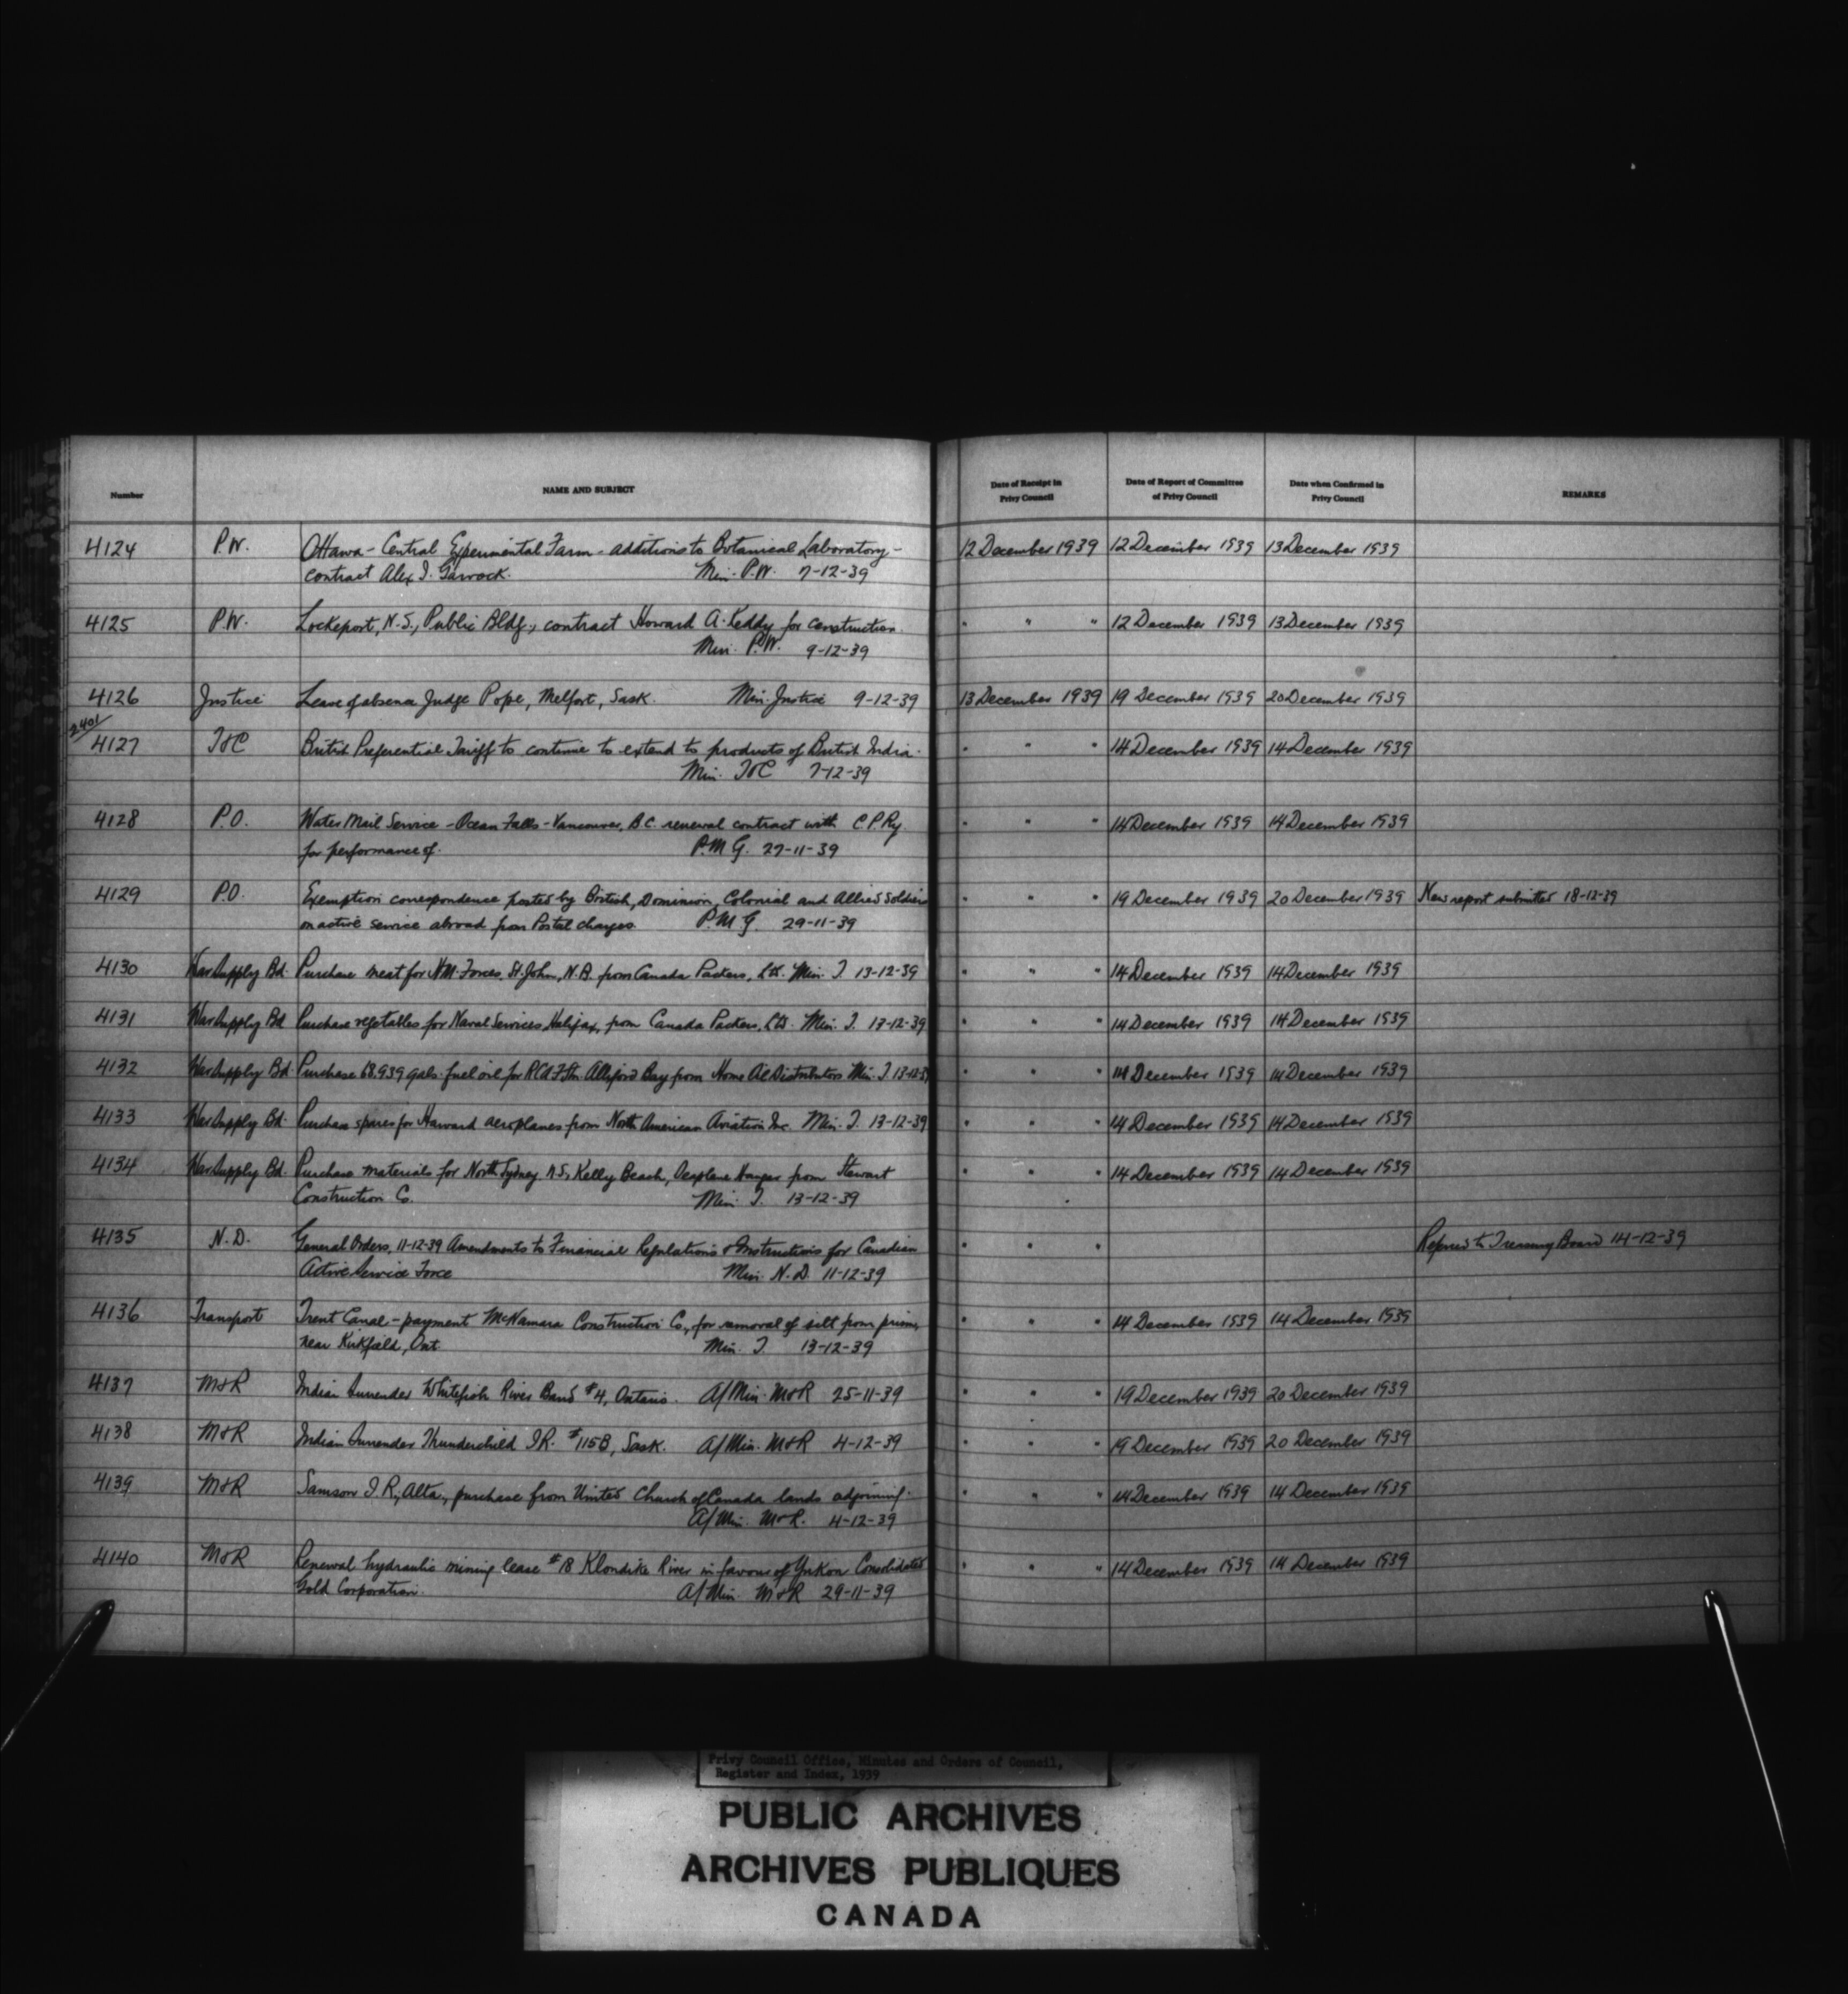 Number NAME AND SUBJECT Date of Receipt in Privy Council Date of Report of Committee of Privy Council Date when Confirmed in Privy Council REMARKS
4124 P.W. Ottawa - Central Experimental Farm - additions to Botanical Laboratory - 12 December 1939 12 December 1939 13 December 1939
contract Alex I. Garvock. Min. P.W. 7-12-39
4125 P.W. Lockeport, N.S., Public Bldg., contract Howard A. Keddy for construction. " " " 12 December 1939 13 December 1939
Min. P.W. 9-12-39
4126 Justice Leave of absence Judge Pope, Melfort, Sask. Min. Justice 9-12-39 13 December 1939 19 December 1939 20 December 1939
2401/
4127 T&C British Preferential Tariff to continue to extend to products of British India. " " " 14 December 1939 14 December 1939
Min. T&C 7-12-39
4128 P.O. Water Mail Service - Ocean Falls - Vancouver, B.C. renewal contract with C.P.Ry. " " " 14 December 1939 14 December 1939
for performance of. P.M.G. 27-11-39
4129 P.O. Exemption correspondence posted by British, Dominion, Colonial and Allied Soldiers " " " 19 December 1939 20 December 1939 New report submitted 18-12-39
on active service abroad from Postal charges. P.M.G. 29-11-39
4130 War Supply Bd. Purchase meat for H.M. Forces, St. John, N.B. from Canada Packers, Ltd. Min. T. 13-12-39 " " " 14 December 1939 14 December 1939
4131 War Supply Bd Purchase vegetables for Naval Services, Halifax, from Canada Packers, Ltd. Min. T. 13-12-39 " " " 14 December 1939 14 December 1939
4132 War Supply Bd. Purchase 68,939 gals. fuel oil for RCAF Stn. Alliford Bay from Home Oil Distributors Min. T. 13-12-39 " " " 14 December 1939 14 December 1939
4133 War Supply Bd. Purchase spares for Harvard aeroplanes from North American Aviation Inc. Min. T. 13-12-39 " " " 14 December 1939 14 December 1939
4134 War Supply Bd. Purchase materials for North Sydney N.S., Kelly Beach, Seaplane Hangar from Stewart " " " 14 December 1939 14 December 1939
Construction Co. Min. T. 13-12-39
4135 N.D. General Orders, 11-12-39 Amendments to Financial Regulations & Instructions for Canadian " " " Referred to Treasury Board 14-12-39
Active Service Force Min. N.D. 11-12-39
4136 Transport Trent Canal - payment McNamara Construction Co., for removal of silt from prism, " " " 14 December 1939 14 December 1939
near Kirkfield, Ont Min. T. 13-12-39
4137 M&R Indian Surrender Whitefish River Band #4, Ontario. A/Min. M&R 25-11-39 " " " 19 December 1939 20 December 1939
4138 M&R Indian Surrender Thunderchild I.R. #115B, Sask. A/Min. M&R 4-12-39 " " " 19 December 1939 20 December 1939
4139 M&R Samson I.R., Alta., purchase from United Church of Canada lands adjoining. " " " 14 December 1939 14 December 1939
A/Min. M&R. 4-12-39
4140 M&R Renewal hydraulic mining lease #18 Klondike River in favour of Yukon Consolidated " " " 14 December 1939 14 December 1939
Gold Corporation. A/Min. M&R 29-11-39
Privy Council Office, Minutes and Orders of Council,
Register and Index, 1939
PUBLIC ARCHIVES
ARCHIVES PUBLIQUES
CANADA